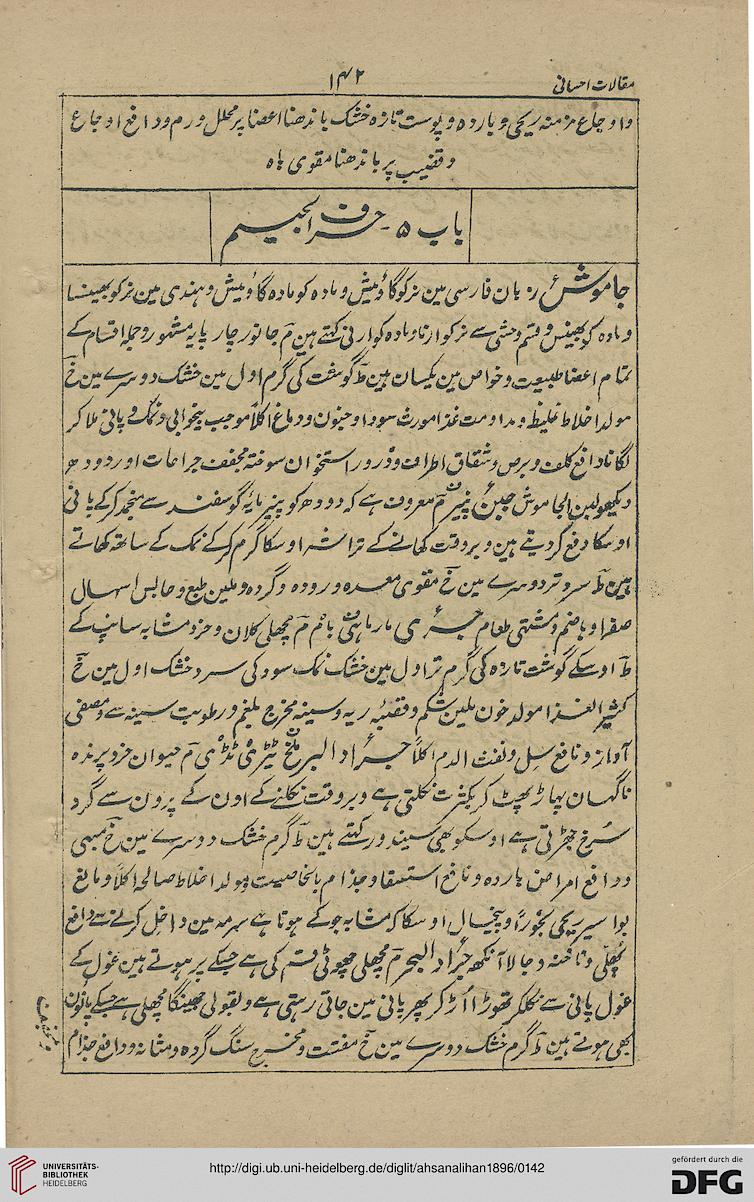 مقالات احسانی
۱۴۲
واوجاع مزمنہ ریحی و باردہ و پوست تازہ خشک باندھنا اعضا پر محلل ورم و دافع اوجاع
و قضیب پر باندھنا مقوی باہ
باب ۵ - حرف الجیم
جاموش زبان فارسی مین نر کو گاؤمیش و مادہ کو مادہ گاؤمیش و ہندی مین نر کو بھینسا
و مادہ کو بھینس و قسم وحشی سے نر کو ارنا و مادہ کو ارنی کہتے ہین م جانور چار پایہ مشہور و جملہ اقسام کے
تمام اعضا طبیعت و خواص مین یکسان ہین ط گوشت کی گرم اول مین خشک دوسرے مین خ
مولد اخلاط غلیظ و مداومت غذا مورث سودا و جنون و دماغ اکلاً موجب بیخوابی و نمک و پانی ملا کر
لگانا دافع کلف و برص و شقاق اطراف و ذرور استخوان سوختہ مجفف جراحات اور دودھ
دیکھو لبن الجاموش جبن پنیر م معروف ہے کہ دودھ کو پنیر مایہ گوسفند سے منجمد کر کے پانی
اوسکا دفع کر دیتے ہین و بروقت کھانے کے تراشہ اوسکا گرم کر کے نمک کے ساتھ کھاتے
ہین ط سرد تر دوسرے مین خ مقوی معدہ و رودہ و گردہ و ملین طبع و حابس اسہال
صفرا و ہاضم و مشتہی طعام جری مارماہی بام م مچھلی کلان و خرد مشابہ سانپ کے
ط اوسکے گوشت تازہ کی گرم تر اول مین خشک نمک سود کی سرد خشک اول مین خ
کثیر الغذا مولد خون ملین شکم و قصبہ ریہ و سینہ مخرج بلغم و رطوبت سینہ سے و مصفی
آواز و نافع سل و نفث الدم اکلاً جراد البر ملخ ٹیڑی ٹڈی م حیوان خرد پرندہ
ناگہان پہاڑ پھٹ کر بکثرت نکلتی ہے و بروقت نکلنے کے اون کے پرون سے گرد
سرخ جھڑتی ہے اوسکو بھی سیندور کہتے ہین ط گرم خشک دوسرے مین خ مبہی
و دافع امراض باردہ و نافع استسقا و جذام بالخاصیت مولد اخلاط صالحہ اکلاً و مانع
بواسیر ریحی بخوراً و پیخال اوسکا کہ مشابہ جو کے ہوتا ہے سرمہ مین داخل کرنے سے دافع
پھلی و ناخنہ و جالا آنکھ جراد البحر م مچھلی چھوٹی قسم کی ہے جسکے پر ہوتے ہین غول کے
غول پانی سے نکلکر تھوڑا اڑ کر پھر پانی مین جاتی رہتی ہے و بقولی جھینگا مچھلی ہے جسکے پانون
بھی ہوتے ہین ط گرم خشک دوسرے مین خ مفتت و مخرج سنگ گردہ و مثانہ و دافع جذام
UNIVERSITÄTS-
BIBLIOTHEK
HEIDELBERG
http://digi.ub.uni-heidelberg.de/diglit/ahsanalihan1896/0142
gefördert durch die
DFG